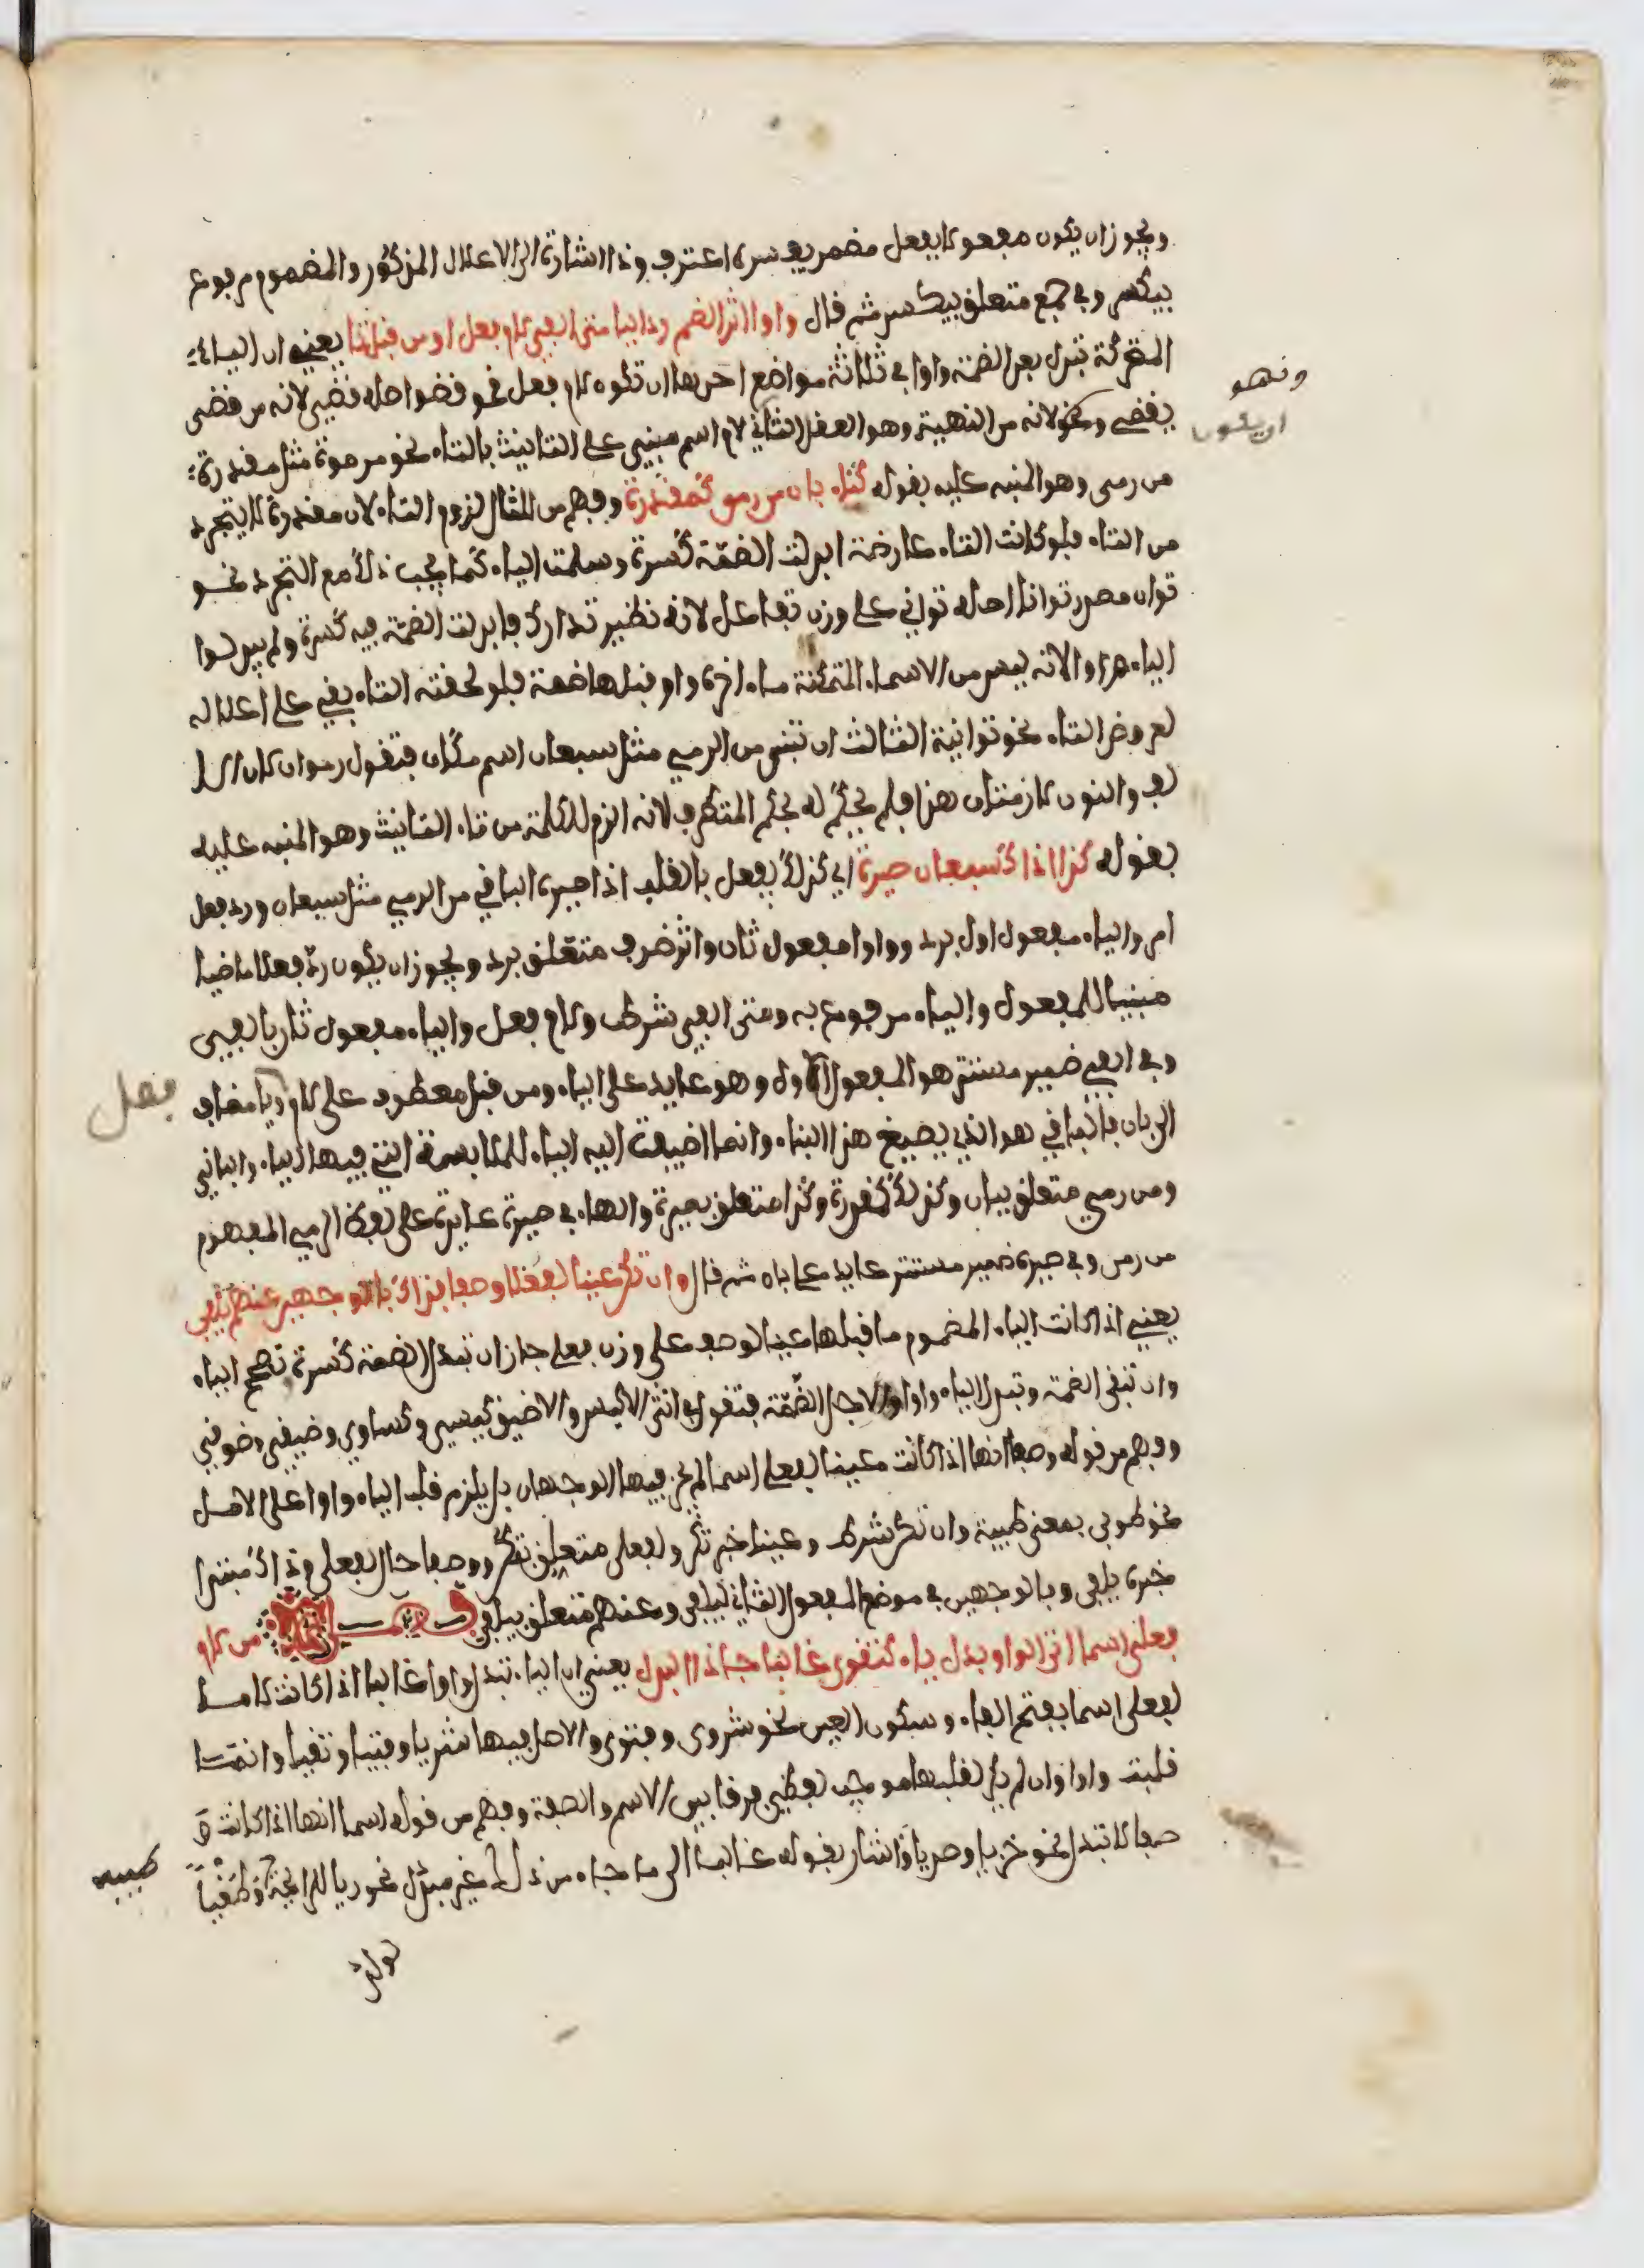 ويجوز ان يكون مفعولا بفعل مضمر يفسره اعترف وذا اشارة الى الاعلال المذكور والمضموم مرفوع
بيكسر وفي جمع متعلق بيكسر ثم قال واوا اثر الضم رد اليا متى الفي لام فعل او من قبل تا يعني ان الياء
المتحركة تبدل بعد الضمة واوا في ثلاثة مواضع احدها ان تكون لام فعل نحو قضو اصله قضي لانه من قضى
يقضي ونحو لانه من النهية وهو العقل الثاني لام اسم مبني على التانيث بالتاء نحو مرموة مثل مقدرة
من رمى وهو المنبه عليه بقوله كتاء بان من رمى كمقدرة وفهم من المثال لزوم التاء لان مقدرة لا يتجرد
من التاء فلو كانت التاء عارضة ابدلت الضمة كسرة وسلمت الياء كما يجب ذلك مع التجرد نحو
توان مصدر توانا اصله تواني على وزن تفاعل لانه نظير تدارك فابدلت الضمة فيه كسرة ولم يبدلوا
الياء واوا لانه ليس من الاسماء المتمكنة ما اخره واو قبلها ضمة فلو لحقته التاء بقي على اعلاله
لعروض التاء نحو توانية الثالث ان تبني من الرمي مثل سبعان اسم مكان فتقول رموان لان الا
لف والنون لازمتان هنا فلم يحكم له بحكم المتطرف لانه الزم للكلمة من تاء التانيث وهو المنبه عليه
بقوله كذا اذا كسبعان صيره اي كذلك يفعل بالقلب اذا صيره الباني من الرمي مثل سبعان ورد فعل
امر والياء مفعول اول برد وواوا مفعول ثان واثر ظرف متعلق برد ويجوز ان يكون رد فعلا ماضيا
مبنيا للمفعول والياء مرفوع به ومتى الفي شرط ولام فعل والياء مفعول ثان بالفي
وفي الفي ضمير مستتر هو المفعول الاول وهو عايد على الياء ومن قبل معطوف على لام وتا مضاف
الى بان فالباني هو الذي يصيغ هذا البناء وانما اضيفت اليه الياء للملابسة التي فيها الياء والباني
ومن رمى متعلق ببان وكذلك كمقدرة وكذا متعلق بصيره والهاء في صيره عايدة على لفظ الرمي المفهوم
من رمى وفي صيره ضمير مستتر عايد على بان ثم قال وان تكن عينا لفعلى وصفا فذاك بالوجهين عنهم يلفى
يعني اذا كانت الياء المضموم ما قبلها عينا لوصف على وزن فعلى جاز ان تبدل الضمة كسرة تصحح الياء
وان تبقى الضمة وتبدل الياء واوا لاجل الضمة فتقول في انثى الاكيس والاضيق كيسى وكوسى وضيقى وضوقى
وفهم من قوله وصفا انها اذا كانت عينا لفعلى اسما لم يجز فيها الوجهان بل يلزم قلب الياء واوا على الاصل
نحو طوبى بمعنى طيبة وان تكن شرط وعينا خبر تكن ولفعلى متعلق بتكن ووصفا حال لفعلى وذاك مبتدا
خبره يلفى وبالوجهين في موضع المفعول الثاني ليلفى وعنهم متعلق بيلفى فصل من لام
فعلى اسما اتى الواو بدل ياء كتقوى غالبا جا ذا البدل يعني ان الياء تبدل واوا غالبا اذا كانت لاما
لفعلى اسما بفتح الفاء وسكون العين نحو شروى وفتوى والاصل فيها شريا وفتيا وتقيا وانما
قلبت واوا وان لم يكن لقلبها موجب لفظي فرقا بين الاسم والصفة وفهم من قوله اسما انها اذا كانت و
صفا لا تبدل نحو خزيا وصديا واشار بقوله غالبا الى ما جاء من ذلك غير مبدل نحو ريا للرايحة وطغيا
لولد
ونهو
او يكون
فعل
طيبة